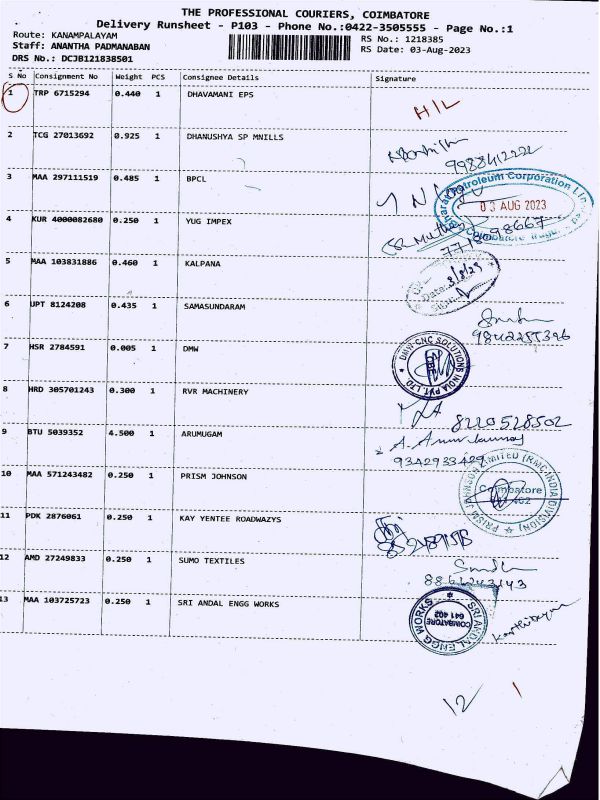 THE PROFESSIONAL COURIERS, COIMBATORE
Delivery Runsheet - P103 - Phone No.:0422-3505555 - Page No.:1
Route: KANAMPALAYAM
RS No.: 1218385
Staff: ANANTHA PADMANABAN
RS Date: 03-Aug-2023
DRS No.: DCJB121838501
S No Consignment No Weight PCS Consignee Details Signature
1 TRP 6715294 0.440 1 DHAVAMANI EPS
H/L
2 TCG 27013692 0.925 1 DHANUSHYA SP MNILLS
9988412222
3 MAA 297111519 0.485 1 BPCL
Bharat Petroleum Corporation
03 AUG 2023
Coimbatore
4 KUR 4000082680 0.250 1 YUG IMPEX
98667
5 MAA 103831886 0.460 1 KALPANA
Date: 3/8/23
Sign:
6 UPT 8124208 0.435 1 SAMASUNDARAM
7 HSR 2784591 0.005 1 DMW
DMW-CNC SOLUTIONS INDIA PVT. LTD
8 HRD 305701243 0.300 1 RVR MACHINERY
8220528502
9 BTU 5039352 4.500 1 ARUMUGAM
9342933429
10 MAA 571243482 0.250 1 PRISM JOHNSON
PRISM JOHNSON LIMITED (RMC-INDIA DIVISION)
Coimbatore
11 PDK 2876061 0.250 1 KAY YENTEE ROADWAZYS
12 AMD 27249833 0.250 1 SUMO TEXTILES
8861243143
13 MAA 103725723 0.250 1 SRI ANDAL ENGG WORKS
SRI ANDAL ENGG WORKS
COIMBATORE
641 402
12 1